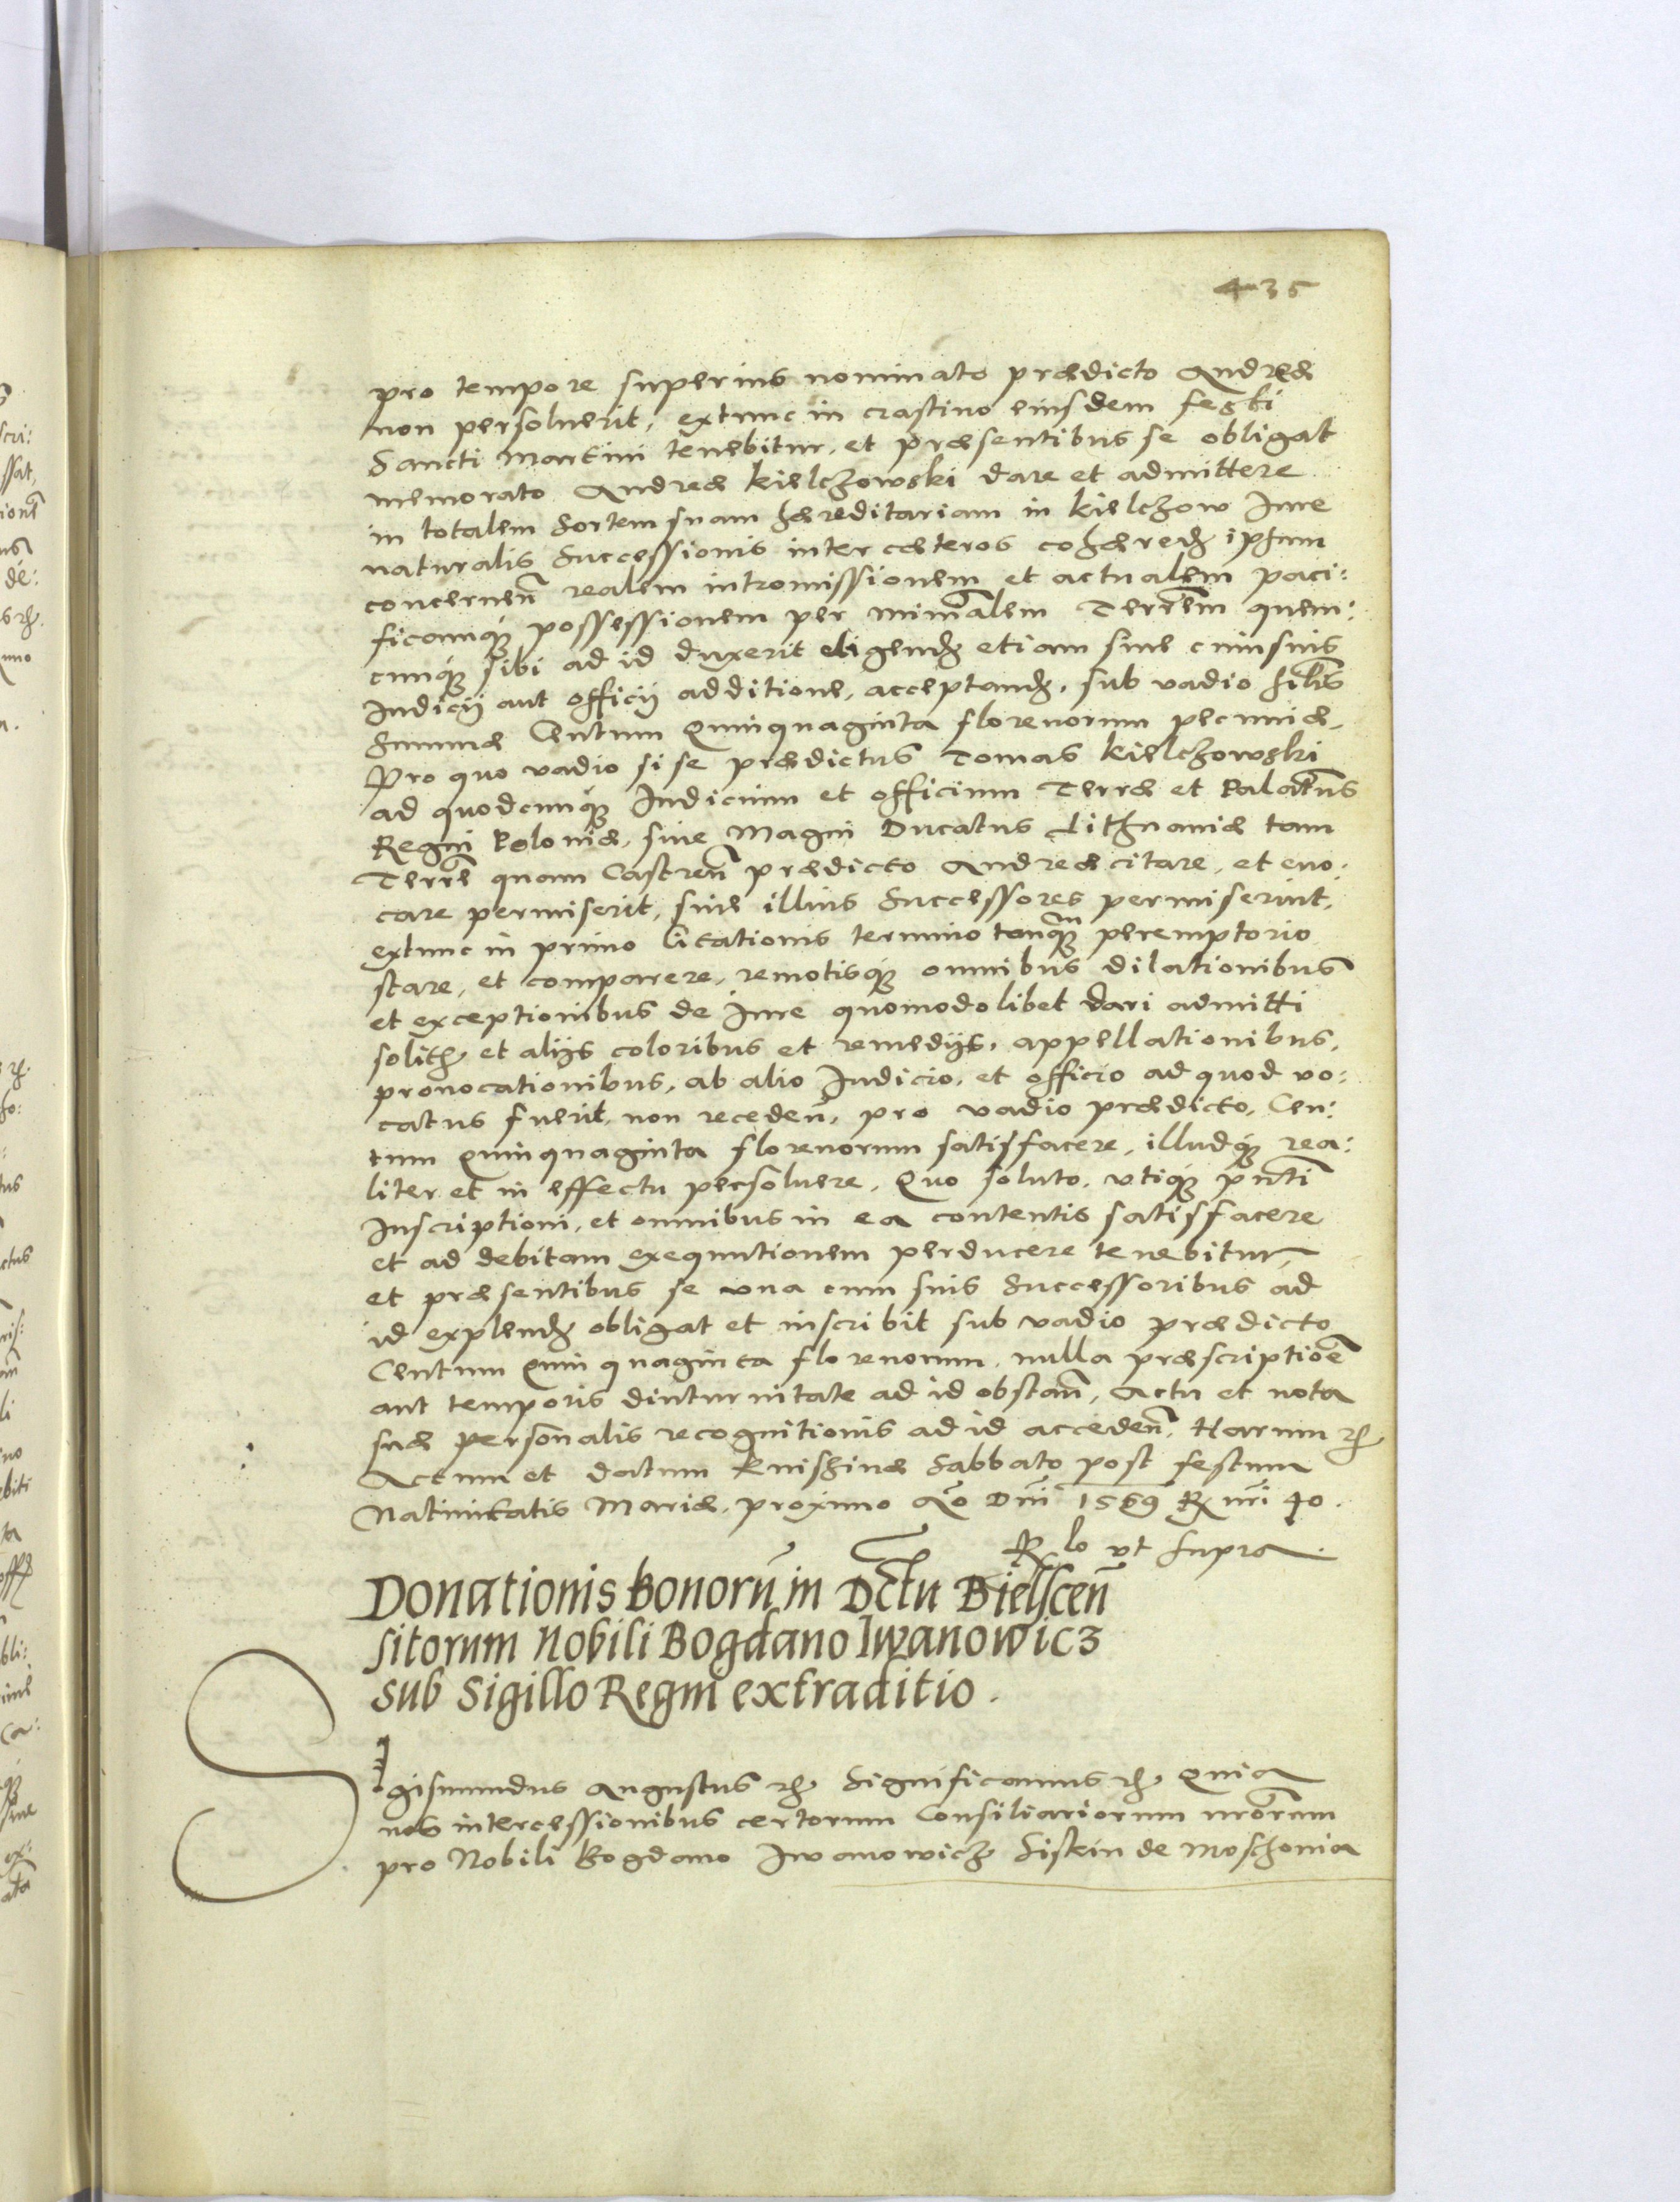 435
pro tempore superius nominato prædicto Andreæ
non persoluerit, extunc in crastino eiusdem festi
Sancti Martini tenebitur, et præsentibus se obligat
memorato Andreæ Kielczowski dare et admittere
in totalem Sortem suam hæreditariam in Kielczow Iure
naturalis Successionis inter cæteros cohæred ipsum
concernen̄ realem intromissionem et actualem paci:
ficamq́ possessionem per minr̄alem Terrēm quem:
cunq́ sibi ad id duxerit eligend etiam sine cuiusuis
Iudicij aut officij additione, acceptand, sub vadio similis
Summæ Centum Quinquaginta florenorum pecuniæ,
Pro quo vadio si se prædictus Tomas Kielczowski
ad quodcunq́ Iudicium et officium Terræ et Palatūs
Regni Poloniæ, siue Magni Ducatus Lithuaniæ tam
Terrē quam Castren̄ prædicto Andreæ citare, et euo:
care permiserit, siue illius Successores permiserint,
extunc in primo Citationis termino tanq̄m peremptorio
stare, et comparere, remotisq́ omnibus dilationibus
et exceptionibus de Iure quomodolibet dari admitti
solitis et alijs coloribus et remedijs, appellationibus,
prouocationibus, ab alio Iudicio, et officio ad quod vo:
catus fuerit, non receden̄, pro vadio prædicto, Cen:
tum quinquaginta florenorum satisfacere, illudq́ rea:
liter et in effectu persoluere, Quo soluto, vtiq́ pn̄ti
Inscriptioni, et omnibus in ea contentis satisfacere
et ad debitam exequutionem perducere tenebitur,
et præsentibus se vna cum suis Successoribus ad
id explend obligat et inscribit sub vadio prædicto
Centum quinquaginta florenorum, nulla præscriptioē
aut temporis diuturnitate ad id obstan̄, Actu et nota
suæ personalis recognitionis ad id acceden̄, Harum etc
Actum et datum Knischinæ Sabbato post festum
Natiuitatis Mariæ, proximo Ao Dn̄i 1569 R nr̄i 40.
R lo vt supra.
Donationis bonorū in Dctu Bielscen̄
sitorum Nobili Bogdano Iwanowicz
sub Sigillo Regni extraditio.
Sigismundus Augustus etc Significamus etc Quia
nos intercessionibus certorum Consiliariorum nr̄orum
pro Nobili Bogdano Iwanowicz Siskin de Moschonia